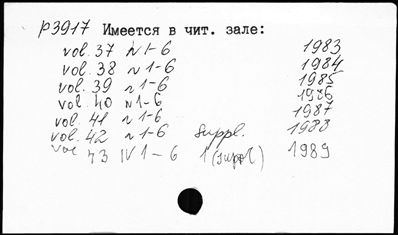 р3917 Имеется в чит. зале:
vol. 37 N 1-6 1983
vol. 38 N 1-6 1984
vol. 39 N 1-6 1985
vol. 40 N 1-6 1986
vol. 41 N 1-6 1987
vol. 42 N 1-6 suppl. 1988
vol 43 N 1-6 1 (suppl) 1989